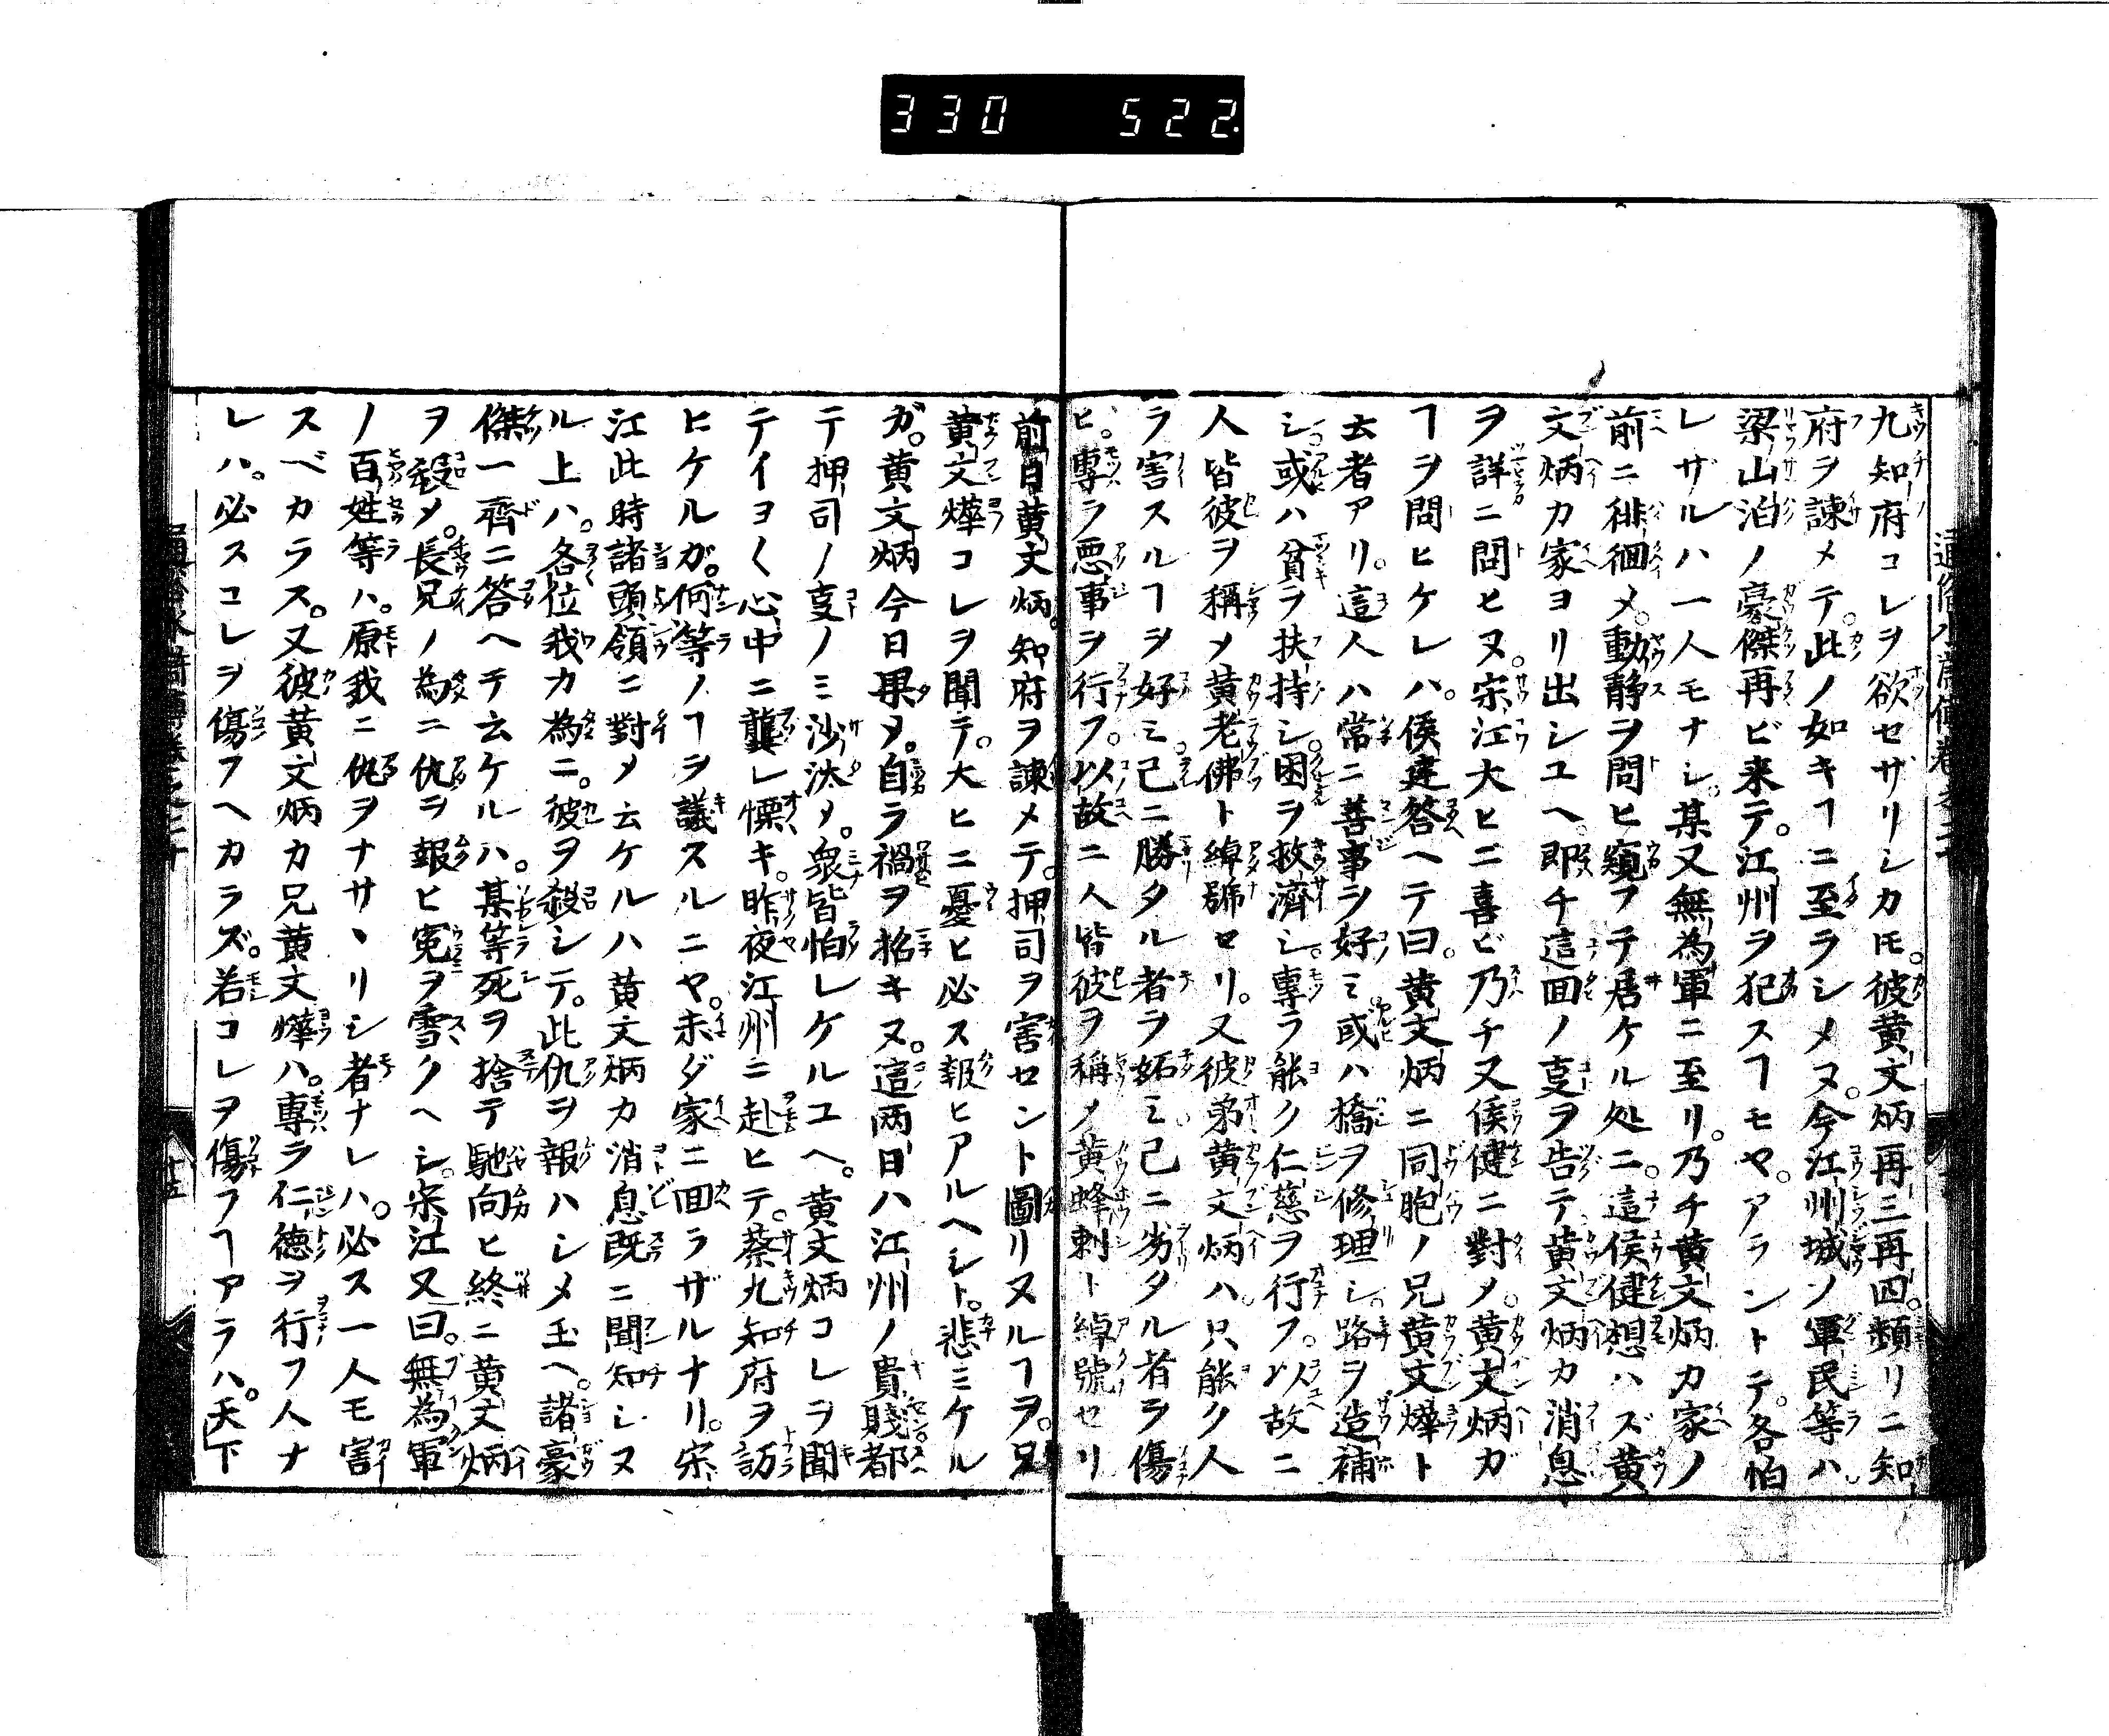 330 522.
九知府コレヲ欲セザリシカ𪜈。彼黄文炳再三再四。頻リニ知
府ヲ諫メテ。此ノ如キヿニ至ラシメヌ。今江州城ノ軍民等ハ。
梁山泊ノ豪傑再ビ来テ。江州ヲ犯スヿモヤ。アラントテ。各怕
レザルハ一人モナシ。某又無為軍ニ至リ。乃チ黄文炳カ家ノ
前ニ徘徊メ。動静ヲ問ヒ窺フテ居ケル処ニ。這侯健想ハズ黄
文炳カ家ヨリ出シユヘ。即チ這回ノ叓ヲ告テ黄文炳カ消息
ヲ詳ニ問ヒヌ。宋江大ヒニ喜ビ乃チ又侯健ニ對メ。黄文炳ガ
ヿヲ問ヒケレハ。侯建答ヘテ曰。黄文炳ニ同胞ノ兄黄文燁ト
云者アリ。這人ハ常ニ善事ヲ好ミ。或ハ橋ヲ修理シ。路ヲ造補
シ。或ハ貧ヲ扶持シ。困ヲ救濟シ。專ラ能ク仁慈ヲ行フ。以故ニ
人皆彼ヲ稱メ黄老佛ト綽號セリ。又彼弟黄文炳ハ。只能ク人
ヲ害スルヿヲ好ミ。己ニ勝タル者ヲ妬ミ己ニ劣タル者ヲ傷
ヒ。專ラ悪事ヲ行フ。以故ニ人皆彼ヲ稱メ黄蜂刺ト綽號セリ
前日黄文炳。知府ヲ諫メテ。押司ヲ害セント圖リヌルヿヲ。兄
黄文燁コレヲ聞テ。大ヒニ憂ヒ必ス報ヒアルヘシト。悲ミケル
ガ。黄文炳今日果タ。自ラ禍ヲ招キヌ。這両日ハ江州ノ貴賤都
テ押司ノ叓ノミ沙汰メ。衆皆怕レケルユヘ。黄文炳コレヲ聞
テイヨ〱心中ニ龔レ慄キ。昨夜江州ニ赴ヒテ。蔡九知府ヲ訪
ヒケルガ。何等ノヿヲ議スルニヤ。未ダ家ニ回ラザルナリ。宋
江此時諸頭領ニ對メ云ケルハ黄文炳カ消息既ニ聞知シヌ
ル上ハ。各位我カ為ニ。彼ヲ殺シテ。此仇ヲ報ハシメ玉ヘ。諸豪
傑一齊ニ答ヘテ云ケルハ。某等死ヲ捨テ馳向ヒ終ニ黄文炳
ヲ殺メ。長兄ノ為ニ仇ヲ報ヒ寃ヲ雪クヘシ。宋江又曰。無為軍
ノ百姓等ハ。原我ニ仇ヲナサヽリシ者ナレハ。必ス一人モ害
スベカラス。又彼黄文炳カ兄黄文燁ハ。專ラ仁徳ヲ行フ人ナ
レハ。必スコレヲ傷フヘカラズ。若コレヲ傷フヿアラハ。天下